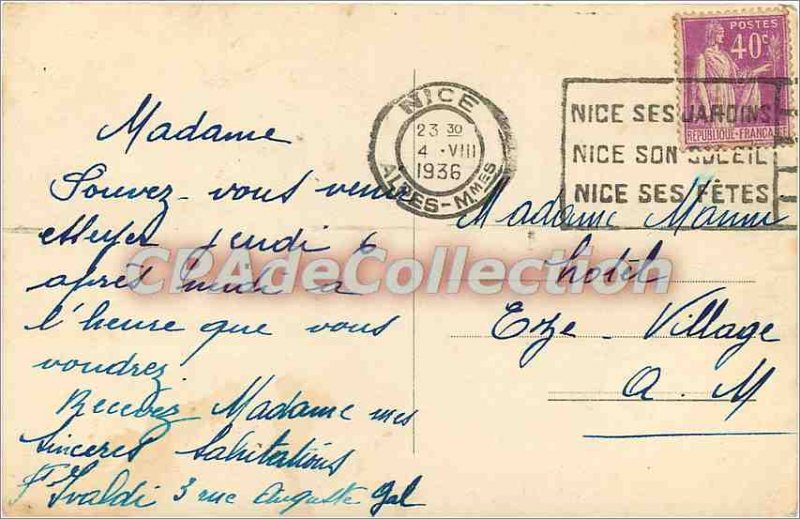 Madame
Pouvez-vous venir
essayer jeudi 6
après midi a
l'heure que vous
voudrez
Recevez Madame mes
sinceres salutations
F Ivaldi 3 rue Auguste Gal
NICE
23 30
4 -VIII
1936
ALPES-MMES
NICE SES JARDINS
NICE SON SOLEIL
NICE SES FÊTES
POSTES
40c
REPUBLIQUE-FRANCAISE
Madame
hotel
Eze-Village
A.M
CPAdeCollection.com